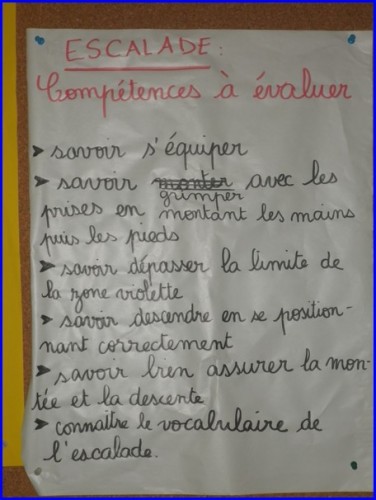 ESCALADE:
Compétences à évaluer
➤ savoir s'équiper
➤ savoir monter avec les
grimper
prises en montant les mains
puis les pieds
➤ savoir dépasser la limite de
la zone violette
➤ savoir descendre en se position-
nant correctement
➤ savoir bien assurer la mon-
tée et la descente
➤ connaître le vocabulaire de
l'escalade.